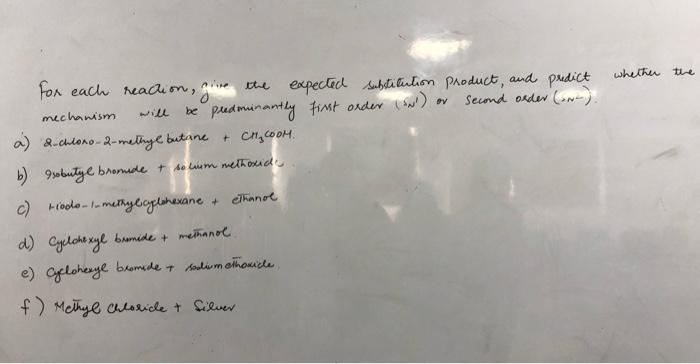 For each reaction, give the expected substitution product, and predict whether the
mechanism will be predminantly first order (SN1) or second order (SN2).
a) 2-chloro-2-methyl butane + CH3COOH.
b) Isobutyl bromide + sodium methoxide
c) 1-iodo-1-methylcyclohexane + ethanol
d) Cyclohexyl bromide + methanol
e) Cyclohexyl bromide + sodium ethoxide.
f) Methyl chloride + Silver